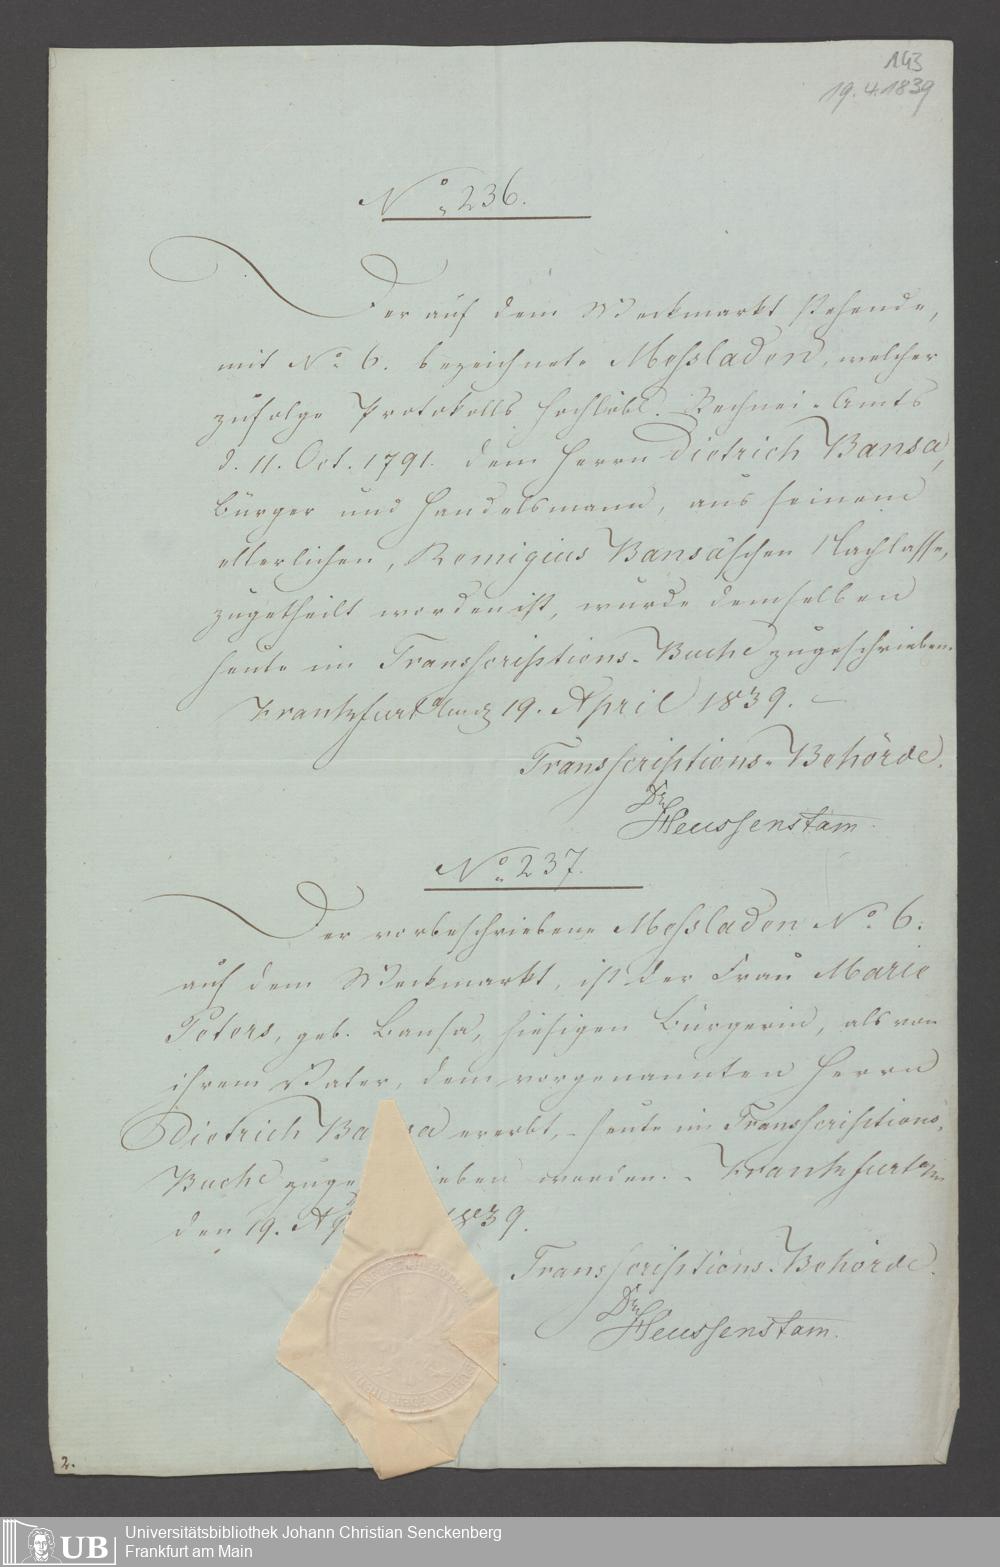 143
19.4.1839
No 236.
Der auf dem Weckmarkt stehende,
mit No 6. bezeichnete Meßladen, welcher
zufolge Protokolls hochlöbl. Rechnei-Amts
d. 11. Oct. 1791. dem Herrn Dietrich Bansa,
Bürger und Handelsmann, aus seinem
elterlichen, Remigius Bansa'schen Nachlasse,
zugetheilt worden ist, wurde demselben
heute im Transscriptions-Buche zugeschrieben.
Frankfurt 19. April 1839.
Transscriptions-Behörde.
Dr. Heussenstam.
No 237.
Der vorbeschriebene Meßladen No 6.
auf dem Weckmarkt, ist der Frau Marie
Peters, geb. Bansa, hiesigen Bürgerin, als von
ihrem Vater, dem vorgenannten Herrn
Dietrich Ba a ererbt, - heute im Transscriptions-
Buche zuge ieben worden. - Frankfurt a/m
den 19. Ap 1839.
Transscriptions-Behörde.
Dr. Heussenstam.
2.
UB
Universitätsbibliothek Johann Christian Senckenberg
Frankfurt am Main